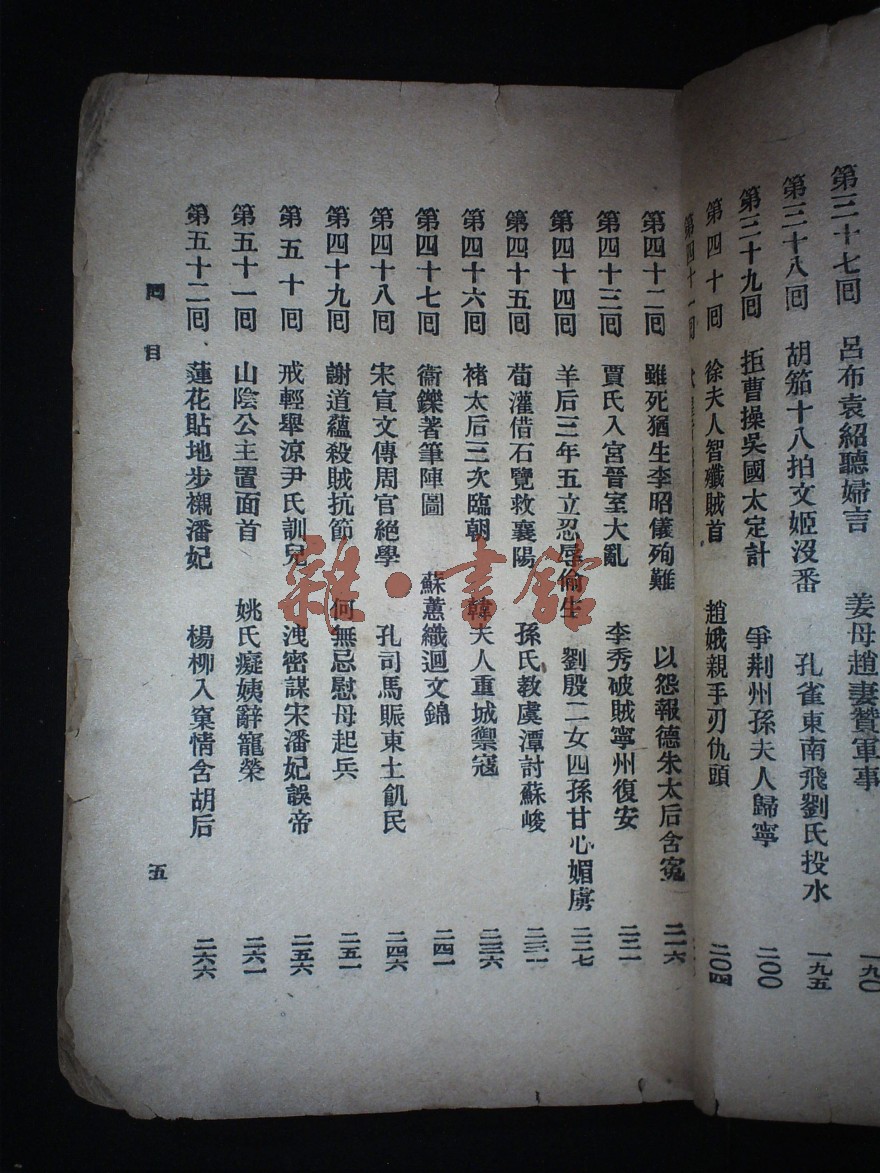 第三十七囘 呂布袁紹聽婦言 姜母趙妻贊軍事 一九〇
第三十八囘 胡笳十八拍文姬沒番 孔雀東南飛劉氏投水 一九五
第三十九囘 拒曹操吳國太定計 爭荆州孫夫人歸寧 二〇〇
第四十囘 徐夫人智殲賊首 趙娥親手刃仇頭 二〇四
第四十一囘
第四十二囘 雖死猶生李昭儀殉難 以怨報德朱太后含寃 二一六
第四十三囘 賈氏入宮晉室大亂 李秀破賊寧州復安 二二一
第四十四囘 羊后三年五立忍辱偷生 劉殷二女四孫甘心媚虜 二二七
第四十五囘 荀灌借石覽救襄陽 孫氏教虞潭討蘇峻 二三一
第四十六囘 褚太后三次臨朝 韓夫人重城禦寇 二三六
第四十七囘 衞鑠著筆陣圖 蘇蕙織迴文錦 二四一
第四十八囘 宋宣文傳周官絕學 孔司馬賑東土飢民 二四六
第四十九囘 謝道蘊殺賊抗節 何無忌慰母起兵 二五一
第五十囘 戒輕舉涼尹氏訓兒 洩密謀宋潘妃誤帝 二五六
第五十一囘 山陰公主置面首 姚氏癡姨辭寵榮 二六一
第五十二囘 蓮花貼地步襯潘妃 楊柳入窠情含胡后 二六六
囘目 五
雜·書館